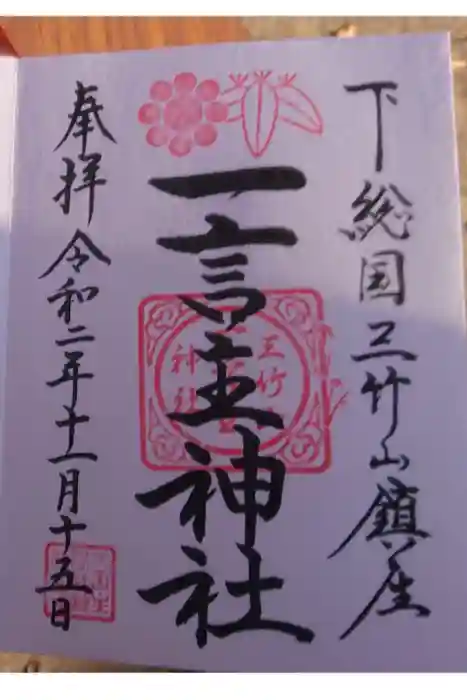 下総国三竹山鎮座
一言主神社
奉拝 令和二年十一月十五日
三竹
神社